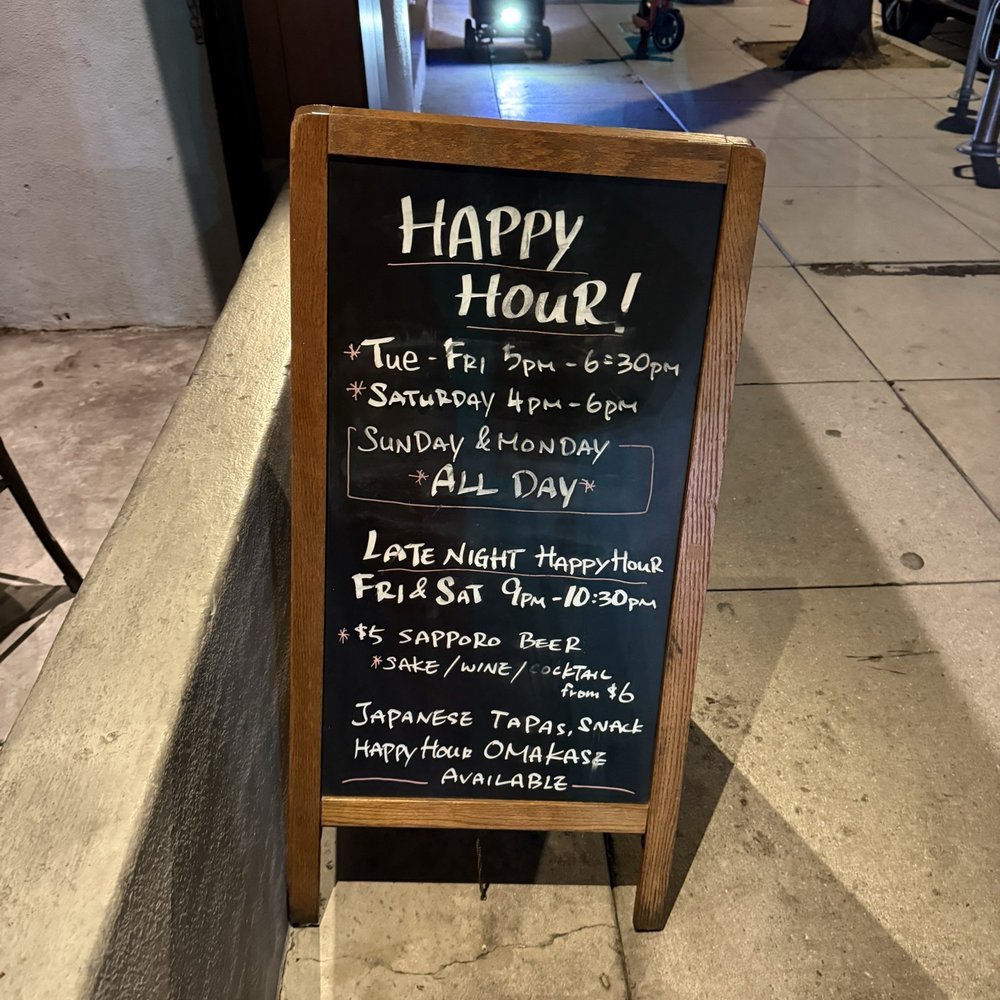 HAPPY
HOUR!
*TUE - FRI 5PM - 6:30PM
*SATURDAY 4PM - 6PM
SUNDAY & MONDAY
*ALL DAY*
LATE NIGHT HAPPY HOUR
FRI & SAT 9PM - 10:30PM
*$5 SAPPORO BEER
*SAKE / WINE / COCKTAIL
from $6
JAPANESE TAPAS, SNACK
HAPPY HOUR OMAKASE
AVAILABLE